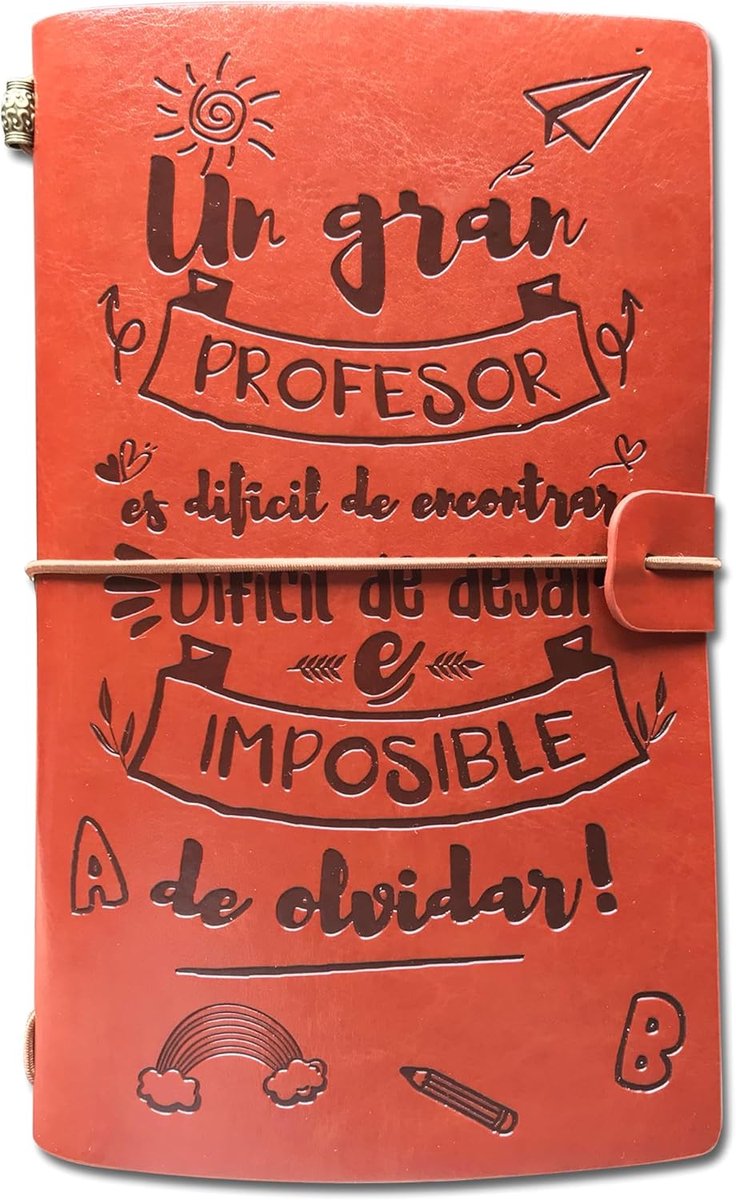 Un gran
PROFESOR
es difícil de encontrar
Difícil de dejar
e
IMPOSIBLE
A
de olvidar!
B